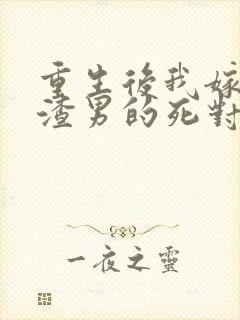 重生後我嫁
渣男的死對
一夜之靈